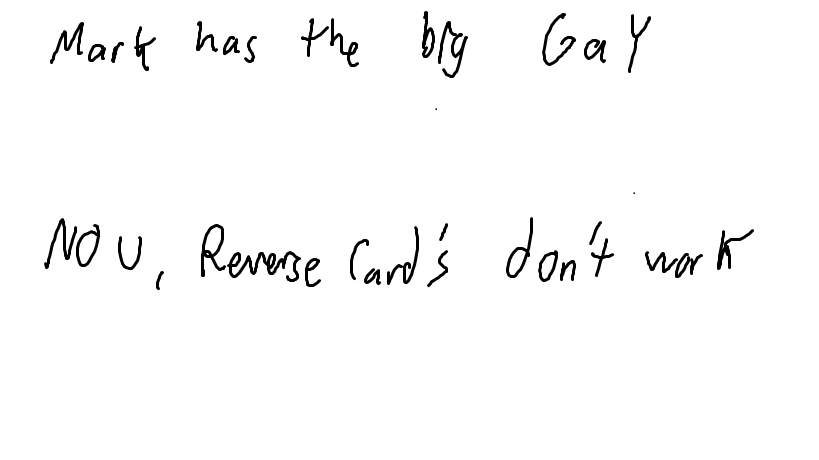 Mark has the big Gay
NO U, Reverse Card's don't work